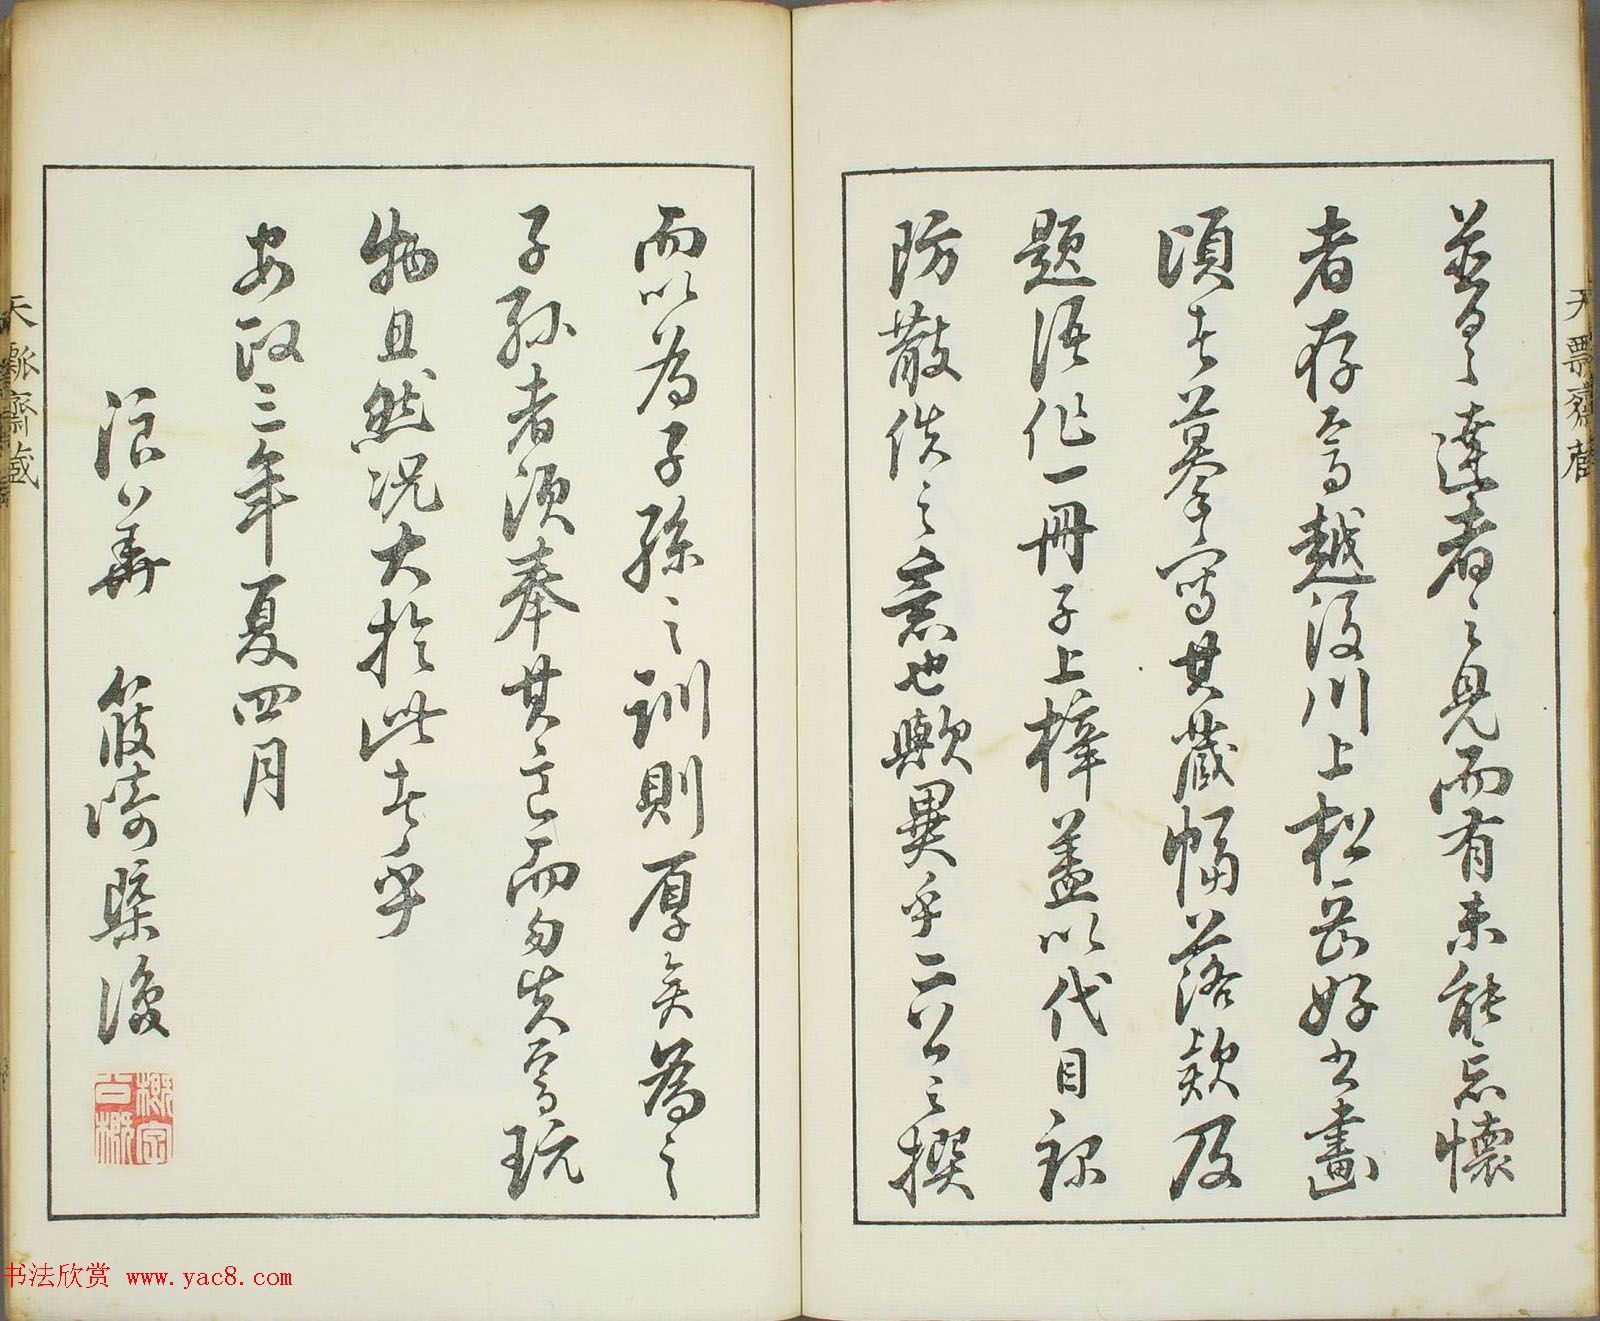 達者之見而有未能忘懷
者存焉越後川上松岳好書畫
頃者摹寫其藏幅落款及
題語作一冊子上梓蓋以代目録
防散佚之意也歟異乎二公之撰
而以為子孫之訓則厚矣為之
子孫者須奉其意而勿失焉玩
物且然况大於此者乎
安政三年夏四月
浪華 筱崎槩後
概字
天瓢齋藏
天瓢齋藏
书法欣赏 www.yac8.com